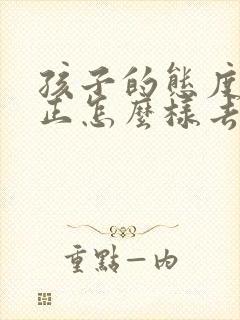 孩子的態度
正怎麼樣去
重點一內